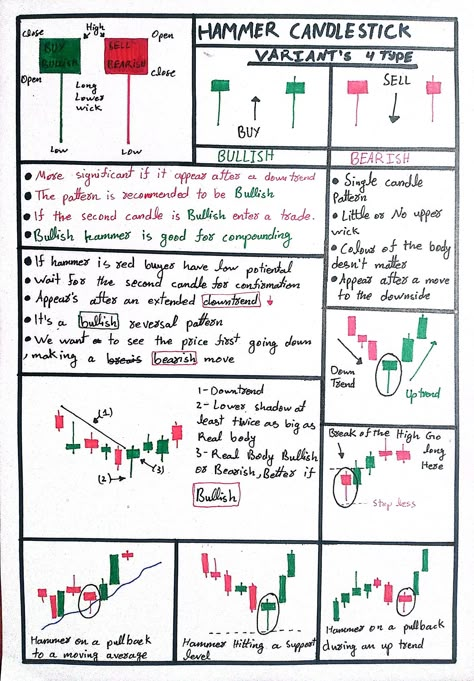 HAMMER CANDLESTICK
VARIANT'S 4 TYPE
Close
High
Open
BUY
BULLISH
SELL
BEARISH
Open
Close
Long
Lower
wick
Low
Low
BUY
SELL
BULLISH
BEARISH
• More significant if it appear after a downtrend
• The pattern is recommended to be Bullish
• If the second candle is Bullish enter a trade.
• Bullish hammer is good for compounding
• Single candle
Pattern
• Little or No upper
wick
• Colour of the body
doesn't matter
• Appear after a move
to the downside
• If hammer is red buyer have low potiental
• Wait for the second candle for confirmation
• Appear's after an extended downtrend
• It's a bullish reversal pattern
• We want to see the price first going down
,making a bearish move
Down
Trend
Uptrend
(1)
(2)
(3)
1- Downtrend
2- Lower shadow at
least twice as big as
Real body
3- Real Body Bullish
or Bearish, Better if
Bullish
Break of the High Go
long
Here
stop less
Hammer on a pullback
to a moving average
Hammer Hitting a Support
level
Hammer on a pullback
during an up trend